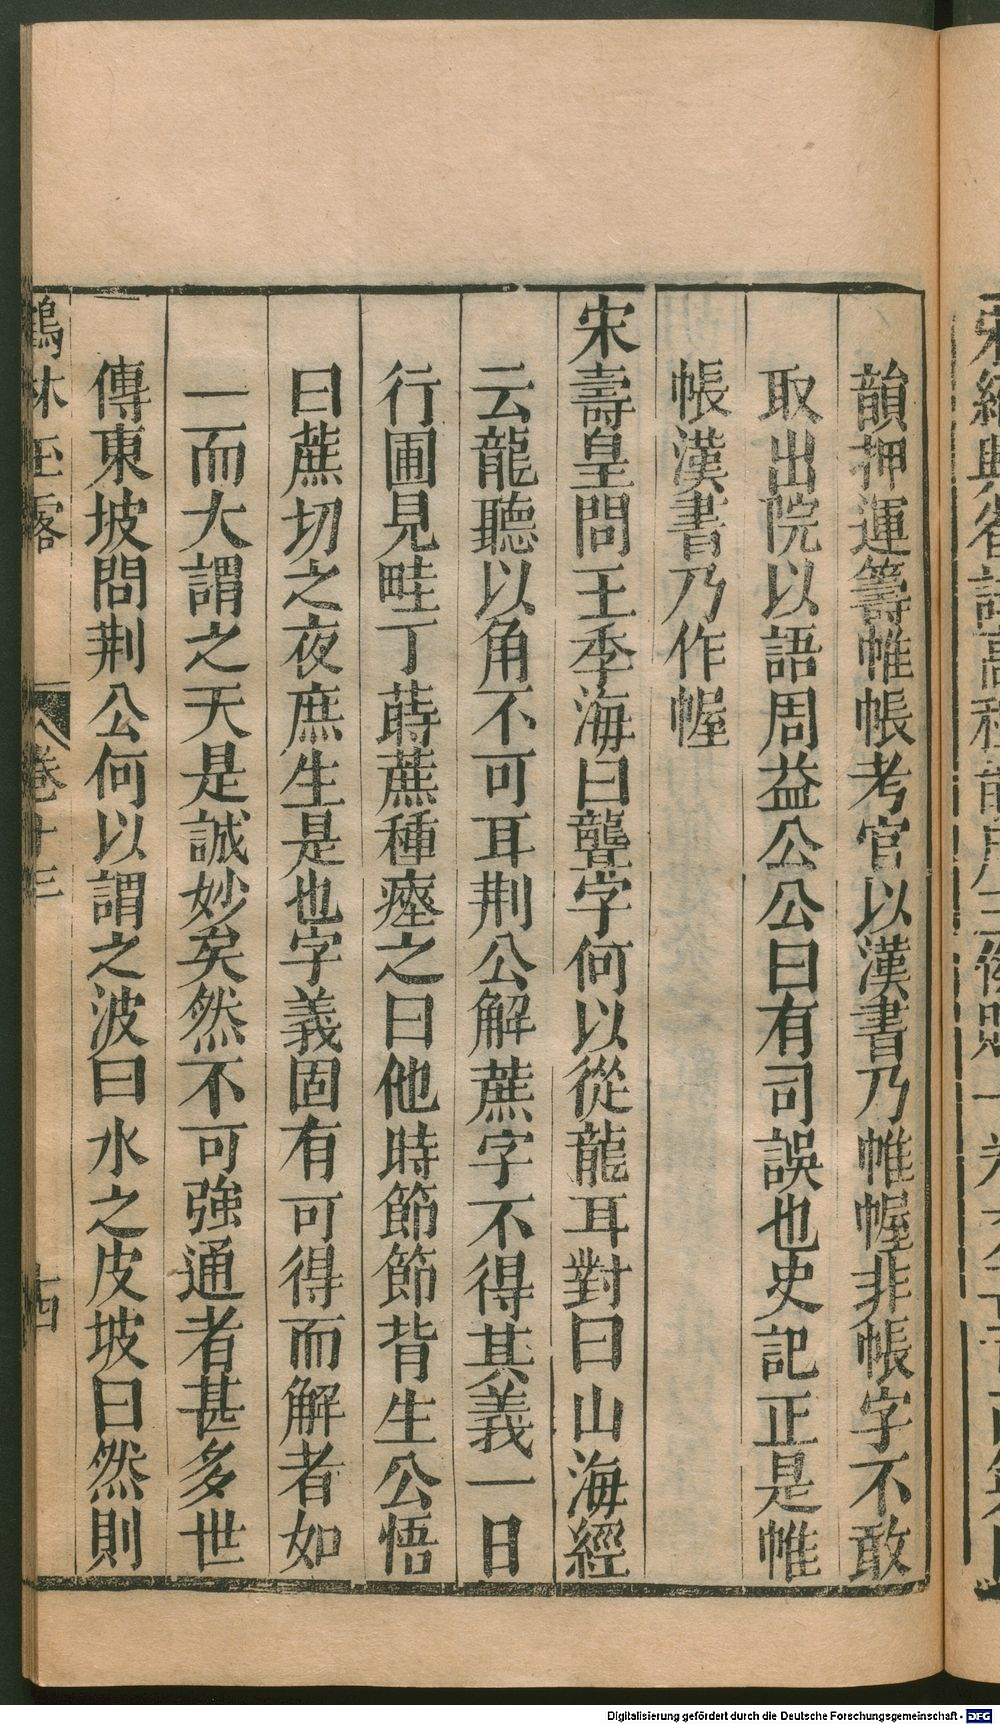 韻押運籌帷帳考官以漢書乃帷幄非帳字不敢
取出院以語周益公公曰有司誤也史記正是帷
帳漢書乃作幄
宋壽皇問王季海曰聾字何以從龍耳對曰山海經
云龍聽以角不可耳荆公解蔗字不得其義一日
行圃見畦丁蒔蔗種瘞之曰他時節節背生公悟
曰蔗切之夜庶生是也字義固有可得而解者如
一而大謂之天是誠妙矣然不可強通者甚多世
傳東坡問荆公何以謂之波曰水之皮坡曰然則
鶴林玉露 卷十三 十四
Digitalisierung gefördert durch die Deutsche Forschungsgemeinschaft - DFG